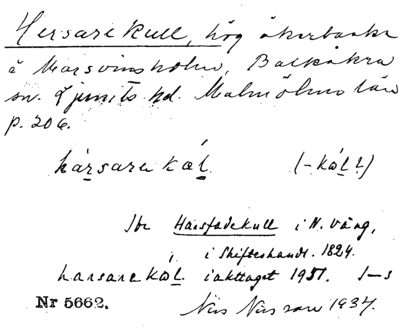 Hersarekull, hög åkerbacke
å Marsvinsholm, Balkåkra
sn. Ljunits hd. Malmöhus län
p. 206.
hàrsarekál (-kál?)
Jbr Harsfadekull i N. Vång,
i Skifteshandl. 1824.
harsarekal iakttaget 1951. I-s
Nr 5662. Nils Nilsson 1937.